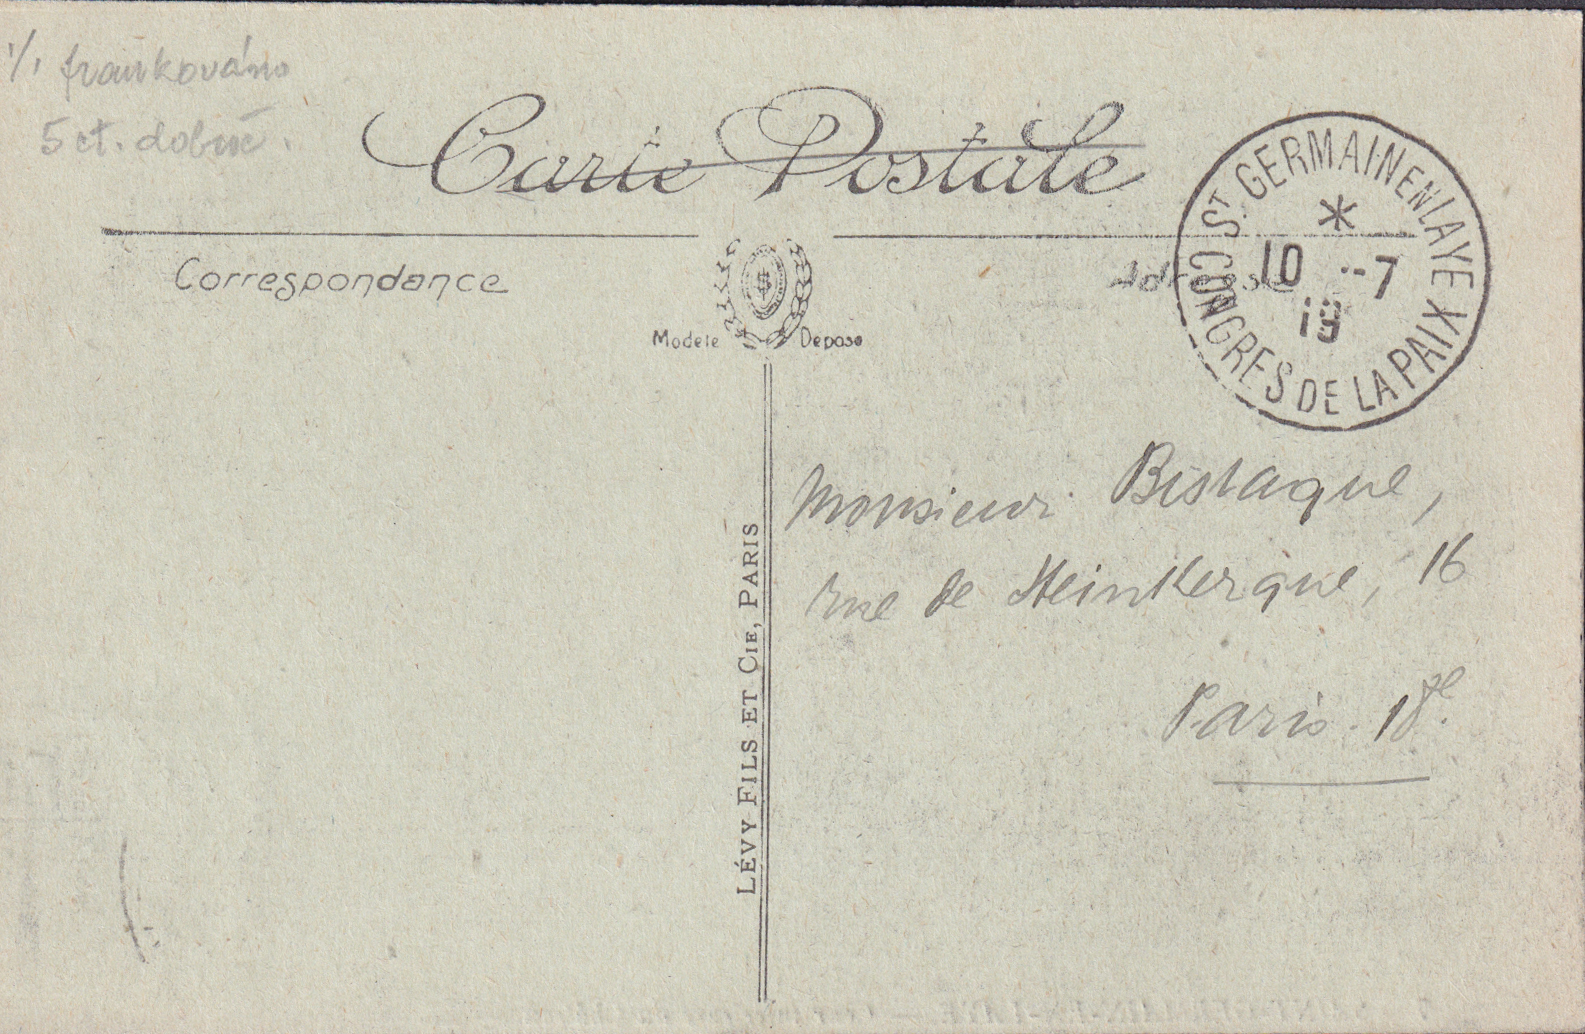 1/1 frankováno
5 ct. dobně.
Carte Postale
Correspondance
Adresse
Modele Deposé
ST GERMAIN EN LAYE
CONGRES DE LA PAIX
10 -7
19
LÉVY FILS ET CIE, PARIS
Monsieur Bistague,
rue de Steinkerque, 16
Paris. 18e.
SAINT-GERMAIN-EN-LAYE